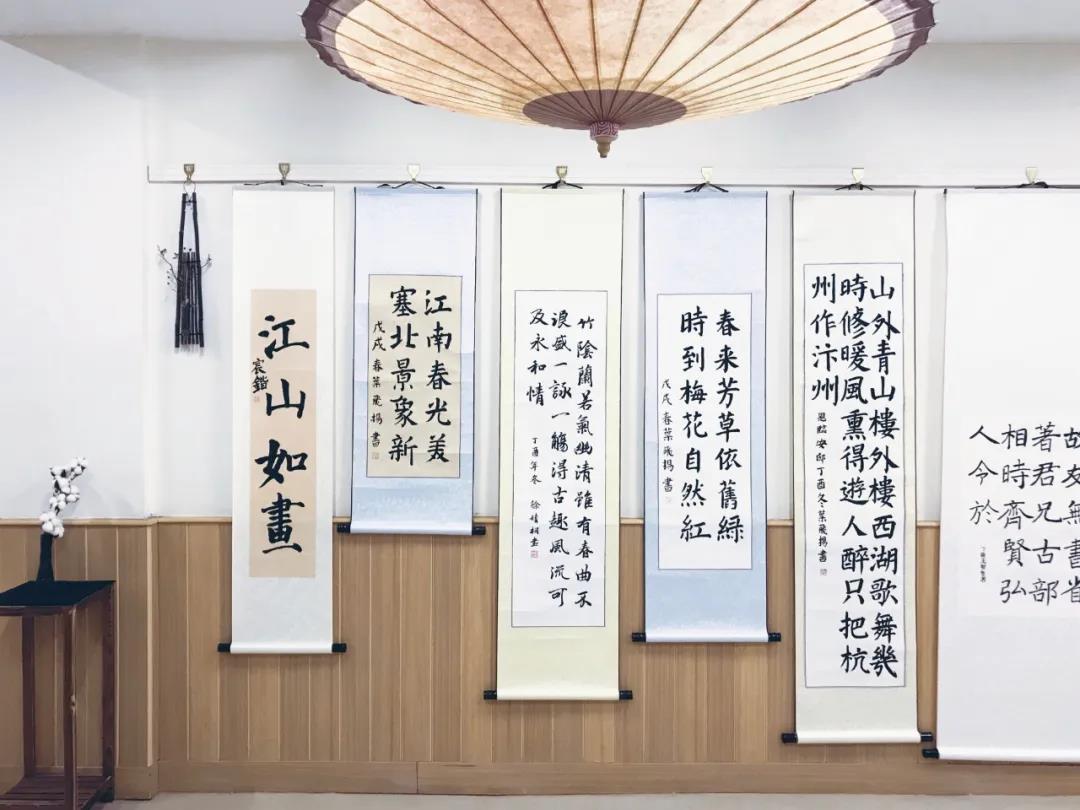 江山如畫
江南春光美
塞北景象新
戊戌春葉飛揚書
竹陰蘭若氣幽清雖有春曲不
浪盛一詠一觴得古趣風流可
及永和情
丁酉年冬 徐
春来芳草依舊綠
時到梅花自然紅
戊戌春葉飛揚書
山外青山樓外樓西湖歌舞幾
時修暖風熏得遊人醉只把杭
州作汴州
題臨安邸丁酉冬葉飛揚書
故友無書省
著君兄古部
相時齊賢弘
人今於